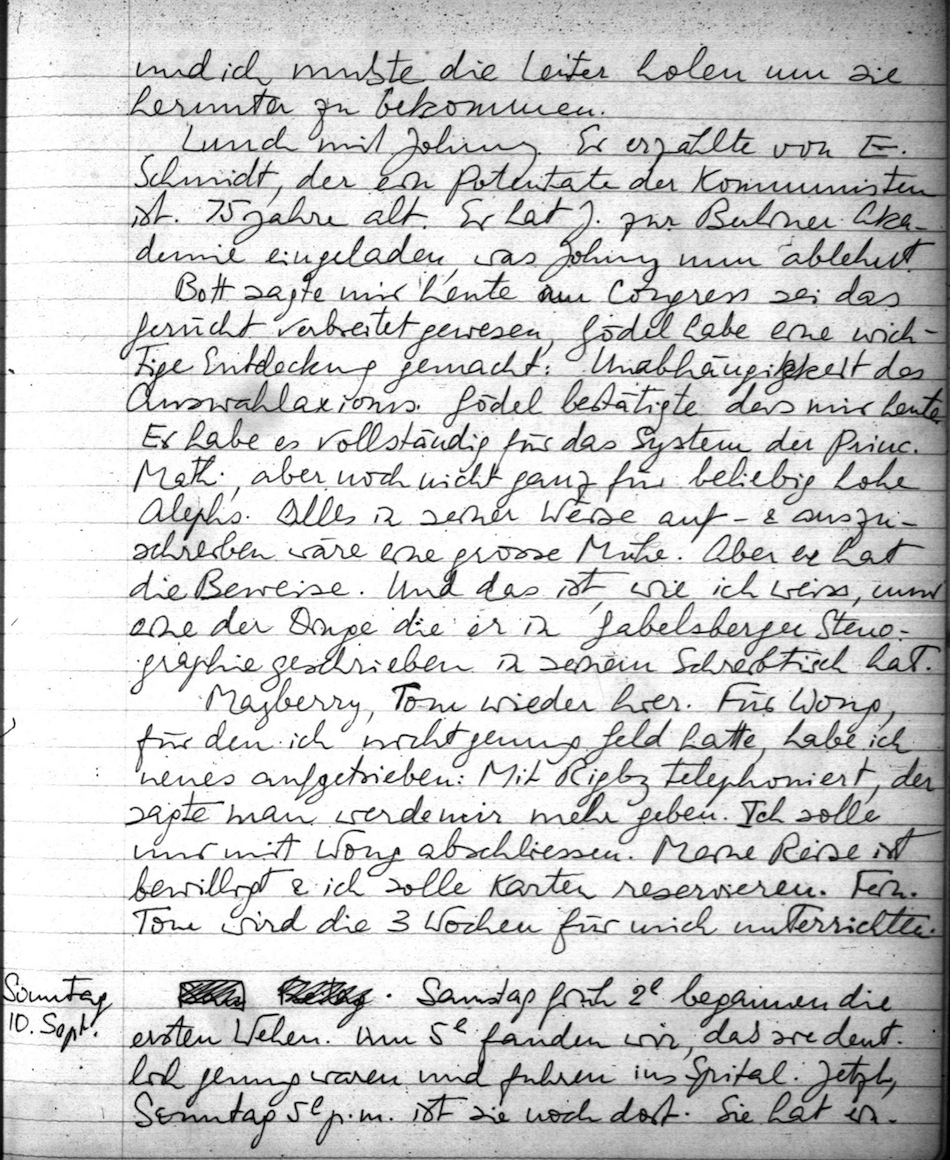 und ich musste die Leiter holen um sie
herunter zu bekommen.
Lunch mit Johnny. Er erzählte von E.
Schmidt, der ein Potentate der Kommunisten
ist. 75 Jahre alt. Er hat J. zur Berliner Aka-
demie eingeladen, was Johnny nun ablehnt.
Bott sagte mir heute am Congress sei das
Gerücht verbreitet gewesen, Gödel habe eine wich-
tige Entdeckung gemacht: Unabhängigkeit des
Auswahlaxioms. Gödel bestätigte das mir heute.
Er habe es vollständig für das System der Princ.
Math., aber noch nicht ganz für beliebig hohe
Alephs. Alles in seiner Weise auf- & auszu-
schreiben wäre eine grosse Mühe. Aber er hat
die Beweise. Und das ist, wie ich weiss, nur
eine der Dinge die er in Gabelsberger Steno-
graphie geschrieben in seinem Schreibtisch hat.
Mayberry, Tom wieder hier. Für Wong,
für den ich nicht genug Geld hatte, habe ich
neues aufgetrieben: Mit Rigby telephoniert, der
sagte man werde mir mehr geben. Ich solle
nur mit Wong abschliessen. Meine Reise ist
bewilligt & ich solle Karten reservieren. Fern.
Tom wird die 3 Wochen für mich unterrichten.
Sonntag
10. Sept.
Samstag früh 2h begannen die
ersten Wehen. Um 5h fanden wir, das sie deut-
lich genug waren und fuhren ins Spital. Jetzt,
Sonntag 5h p.m. ist sie noch dort. Sie hat ein-